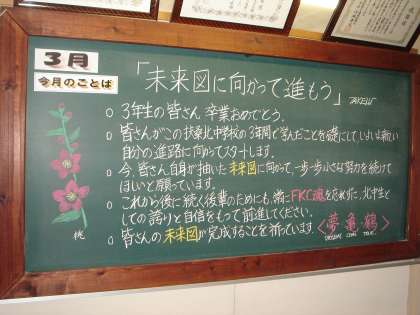 3月
今月のことば
「未来図に向かって進もう」
TAKEUT
○ 3年生の皆さん、卒業おめでとう。
○ 皆さんがこの扶桑北中学校の3年間で学んだことを礎にして、いよいよ新しい
自分の進路に向かってスタートします。
○ 今、皆さん自身が描いた未来図に向かって、一歩一歩小さな努力を続けて
ほしいと願っています。
○ これから後に続く後輩のためにも、常にFKC魂を忘れずに、北中生と
しての誇りと自信をもって前進してください。
○ 皆さんの未来図が完成することを祈っています。
<夢亀鶴>
DREAMS COME TRUE
桃